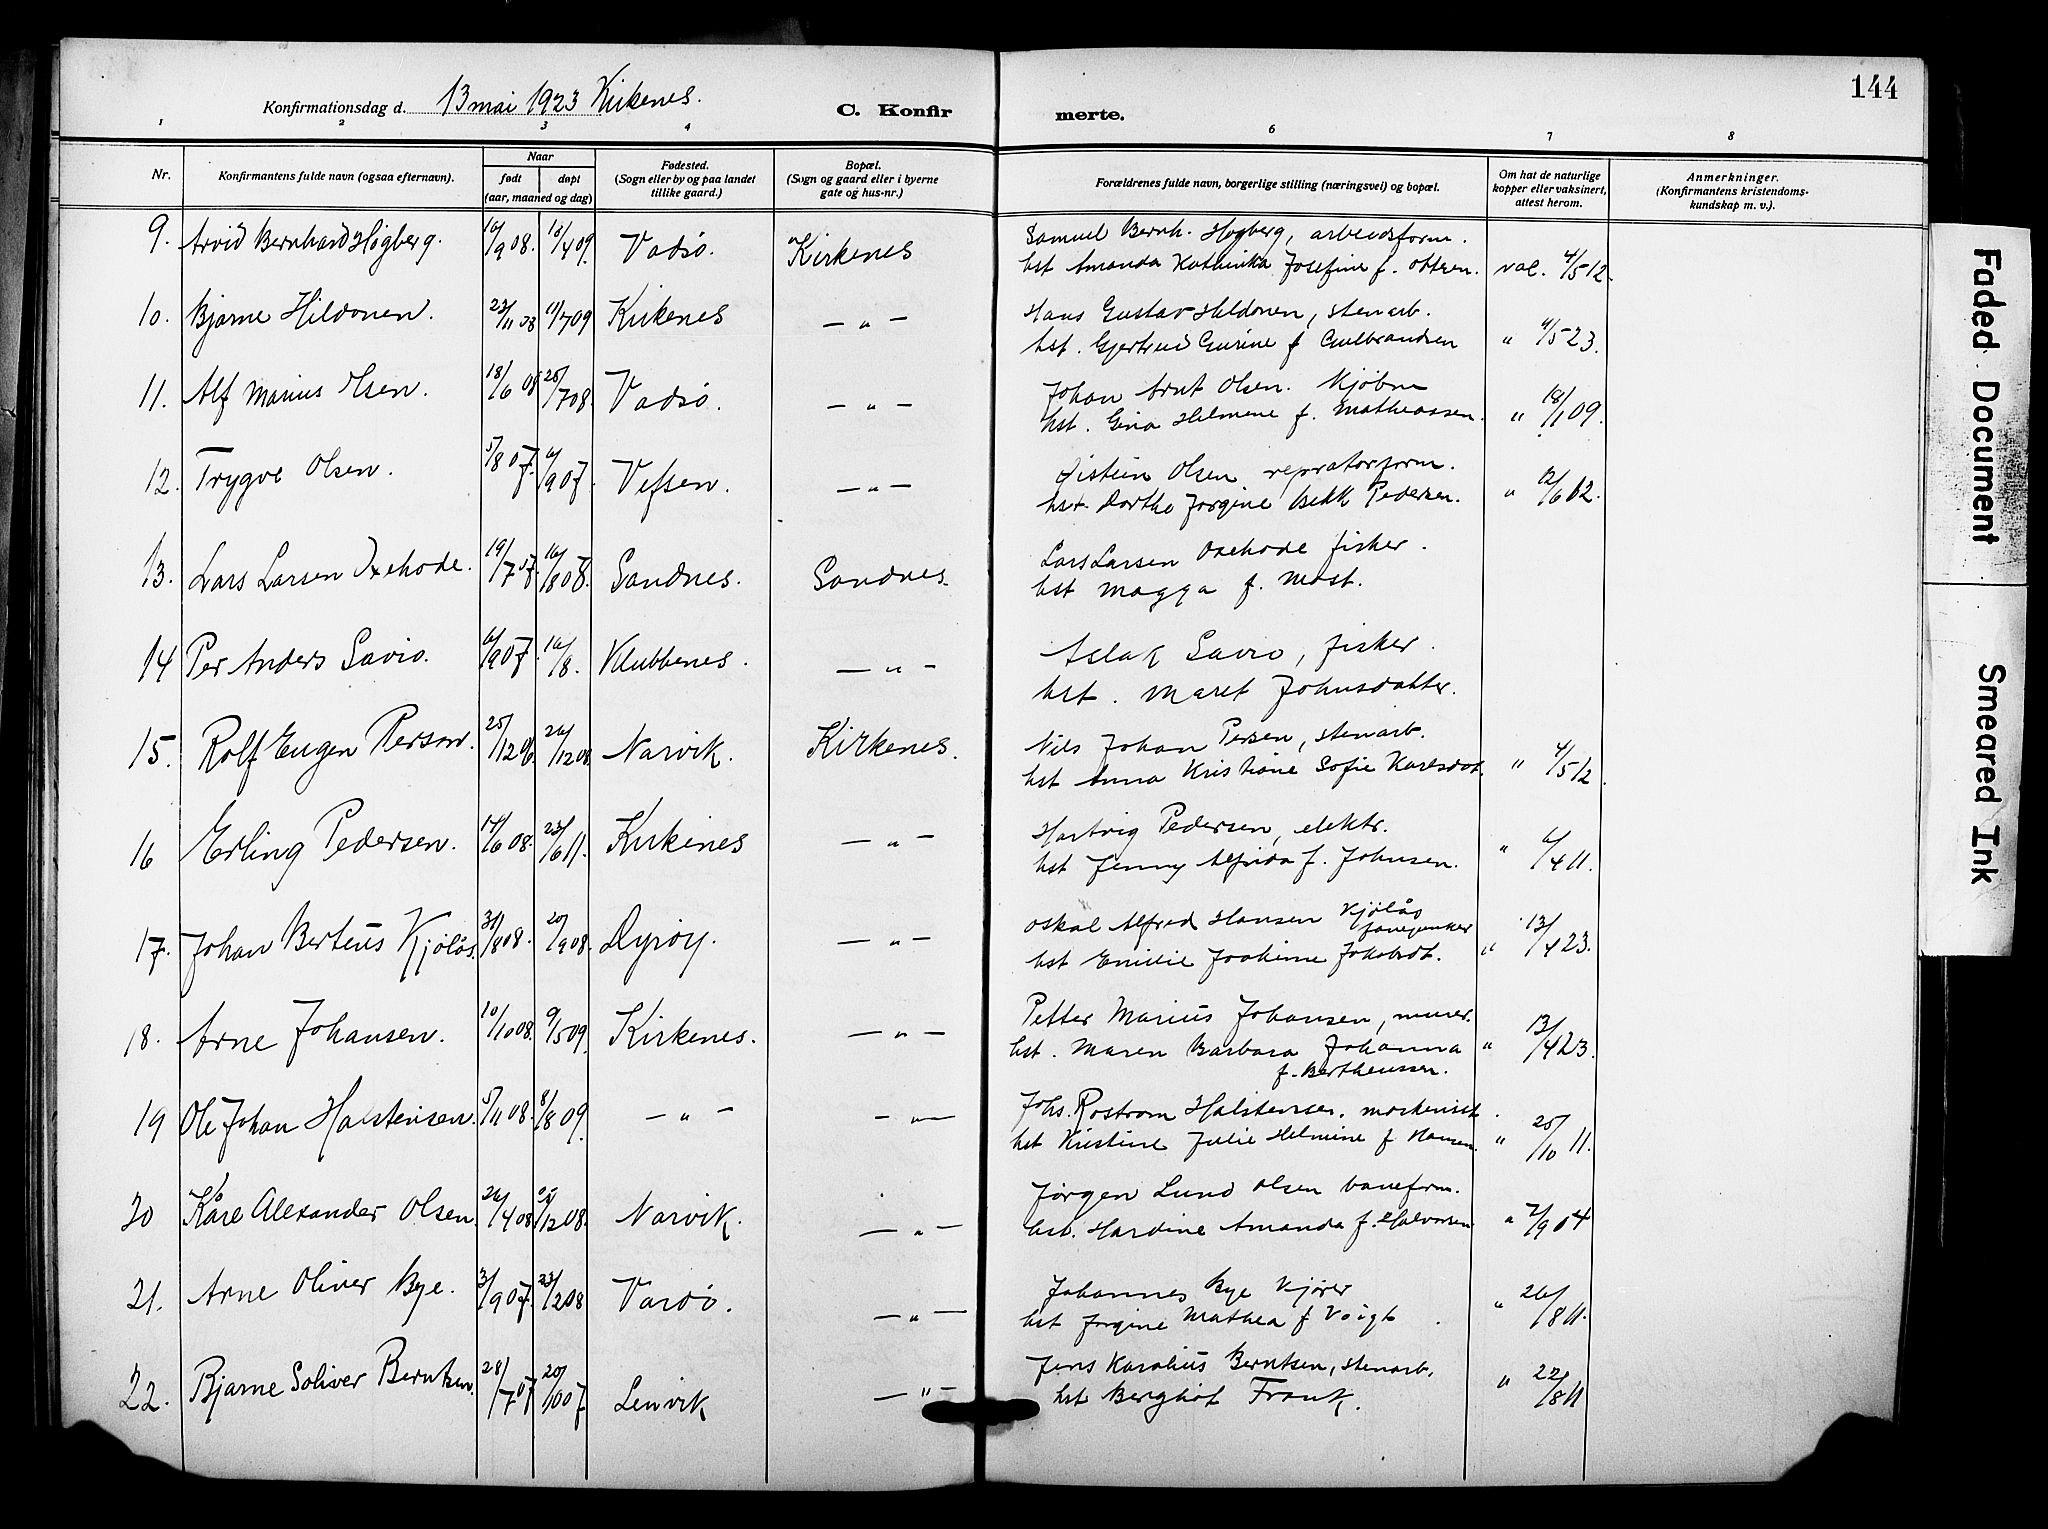 144
Konfirmationsdag d. 13 mai 1923 Kirkenes.
C. Konfirmerte.
1 2 3 4 6 7 8
Nr.
Konfirmantens fulde navn (ogsaa efternavn).
Naar
født døpt
(aar, maaned og dag)
Fødested.
(Sogn eller by og paa landet
tillike gaard.)
Bopæl.
(Sogn og gaard eller i byerne
gate og hus-nr.)
Forældrenes fulde navn, borgerlige stilling (næringsvei) og bopæl.
Om hat de naturlige
kopper eller vaksinert,
attest herom.
Anmerkninger.
(Konfirmantens kristendoms-
kundskap m. v.).
9. Arvid Bernhard Høgberg. 16/9 08. 18/4 09. Vadsø. Kirkenes Samuel Bernh. Høgberg, arbeidsform.
hst Amanda Kathinka Josefine f. Ottsen. vac. 4/5 12.
10. Bjarne Hildonen. 23/11 08 11/7 09 Kirkenes — " — Hans Gustav Hildonen, stenarb.
hst. Gjertrud Gurine f Gulbrandsen " 4/5 23.
11. Alf Marius Olsen. 18/6 08 25/7 08. Vadsø. — " — Johan Arnt Olsen. Kjøbm
hst. Gina Helmene f. Matheassen. " 18/1 09.
12. Trygve Olsen. 5/8 07. 6/9 07. Vefsen. — " — Øistein Olsen repratørform.
hst. Dorthe Jorgine Bekk Pedersen. " 12/6 12.
13. Lars Larsen Oxehode. 19/7 08 16/8 08. Sandnes. Sandnes. Lars Larsen Oxehode fisker.
hst Magga f. Mast.
14 Per Anders Savio. 6/9 07. 16/8. Klubbenes. — " — Aslak Savio, fisker.
hst. Maret Johnsdatter.
15. Rolf Eugen Person. 25/12 06. 26/12 08 Narvik. Kirkenes. Nils Johan Persen, stenarb.
hst Anna Kristiane Sofie Karlsdat. " 4/5 12
16 Erling Pedersen. 14/6 08. 23/6 11. Kirkenes — " — Hartvig Pedersen, elektr.
hst Jenny Alfrida f. Johnsen. " 6/4 11.
17. Johan Berteus Kjölås. 31/8 08. 20/9 08. Dyrøy. — " — Oskal Alfred Hansen Kjölås
hst Emilie Joakime Jakobsdt. " 13/4 23.
18. Arne Johansen. 10/10 08. 9/5 09. Kirkenes. — " — Petter Marius Johansen, murer.
hst. Maren Barbara Johanna " 13/4 23.
f. Bertheussen.
19 Ole Johan Halstensen. 5/11 08. 8/8 09. — " — — " — Johs. Rostrom Halstensen, maskenist.
hst Kristine Julie Helmine f Hansen. " 25/10 11.
20 Kåre Alexander Olsen 26/4 08 /12 08. Narvik. — " — Jørgen Lund Olsen baneform.
hst. Hardine Amanda f. Halvorsen " 7/9 04
21. Arne Oliver Bye. 3/9 07. 23/2 08 Vardö. — " — Johannes Bye Kjører
hst Jorgine Mathea f Voigt " 26/8 11.
22. Bjarne Soliver Berntsen. 28/7 07 20/10 07 Lenvik — " — Jens Karolius Berntsen, stenarb.
hst Berghot Frank. " 22/8 11
Faded Document
Smeared Ink